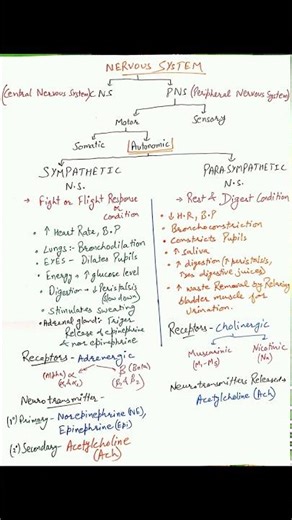 NERVOUS SYSTEM
(Central Nervous System) C N S
PNS (Peripheral Nervous System)
Motor
Sensory
Somatic
Autonomic
SYMPATHETIC
N.S.
→ Fight or Flight Response
or
Condition
• ↑ Heart Rate, B.P
• Lungs:- Bronchodilation
• EYES - Dilates Pupils
• Energy → ↑ glucose level
• Digestion → ↓ Peristalsis
(slow down)
• Stimulates Sweating
• Adrenal gland: Triger
Release of epinephrine
& nor epinephrine
Receptors - Adrenergic
(Alpha) α
(α1 & α2)
β (Beta)
(β1 & β2)
Neurotransmitter -
(1°) Primary - Norepinephrine (NE),
Epinephrine (Epi)
(2°) Secondary - Acetylcholine
(Ach)
PARASYMPATHETIC
N.S.
→ Rest & Digest Condition
• ↓ H.R, B.P
• Bronchoconstriction
• Constricts Pupils
• ↑ Saliva
• ↑ digestion (↑ peristalsis,
digestive juices)
• ↑ Waste Removal by Relaxing
bladder muscle for
Urination.
Receptors - Cholinergic
Muscarinic
(M1-M5)
Nicotinic
Neurotransmitters Released
Acetylcholine (Ach)